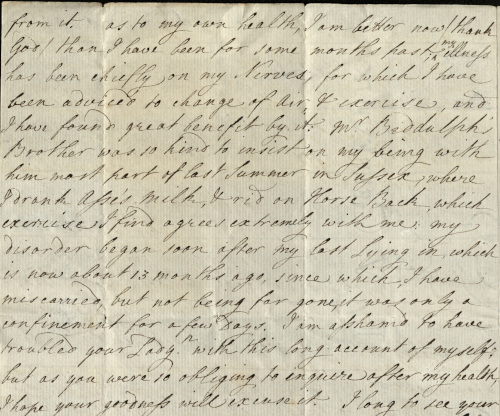 from it. as to my own health, I am better now (thank
God) than I have been for some months past, my illness
has been chiefly on my Nerves, for which I have
been advised to change of Air, & exercise, and
I have found great benefit by it: Mr. Biddulph's
Brother was so kind to insist on my being with
him most part of last Summer in Sussex, where
I drank Asses Milk, & rid on Horse Back, which
exercise I find agrees extremely with me: my
disorder began soon after my last Lying in, which
is now about 13 months ago, since which, I have
miscarried, but not being far gone, it was only a
confinement for a few Days. I am ashamd to have
troubled your Lady.p with this long account of myself:
but as you were so obliging to enquire after my health
I hope your goodness will excuse it. I long to see your